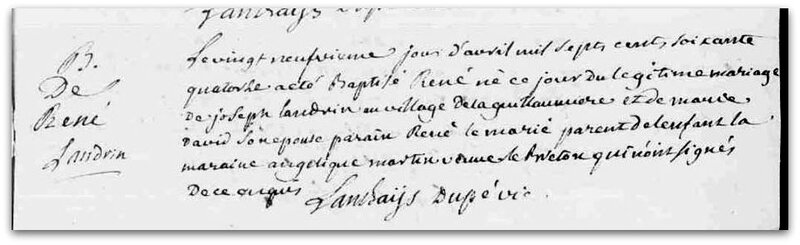 B.
De
René
Landrin
Le vingt neufvieme jour d'avril mil septs cents soixante
quatorze a eté Baptisé René né ce jour du legitime mariage
de joseph landrin au village de la guillaumiere et de marie
david son epouse parain René le marié parent de lenfant la
maraine angelique martin le Breton qui n'ont signés
De ce enquis